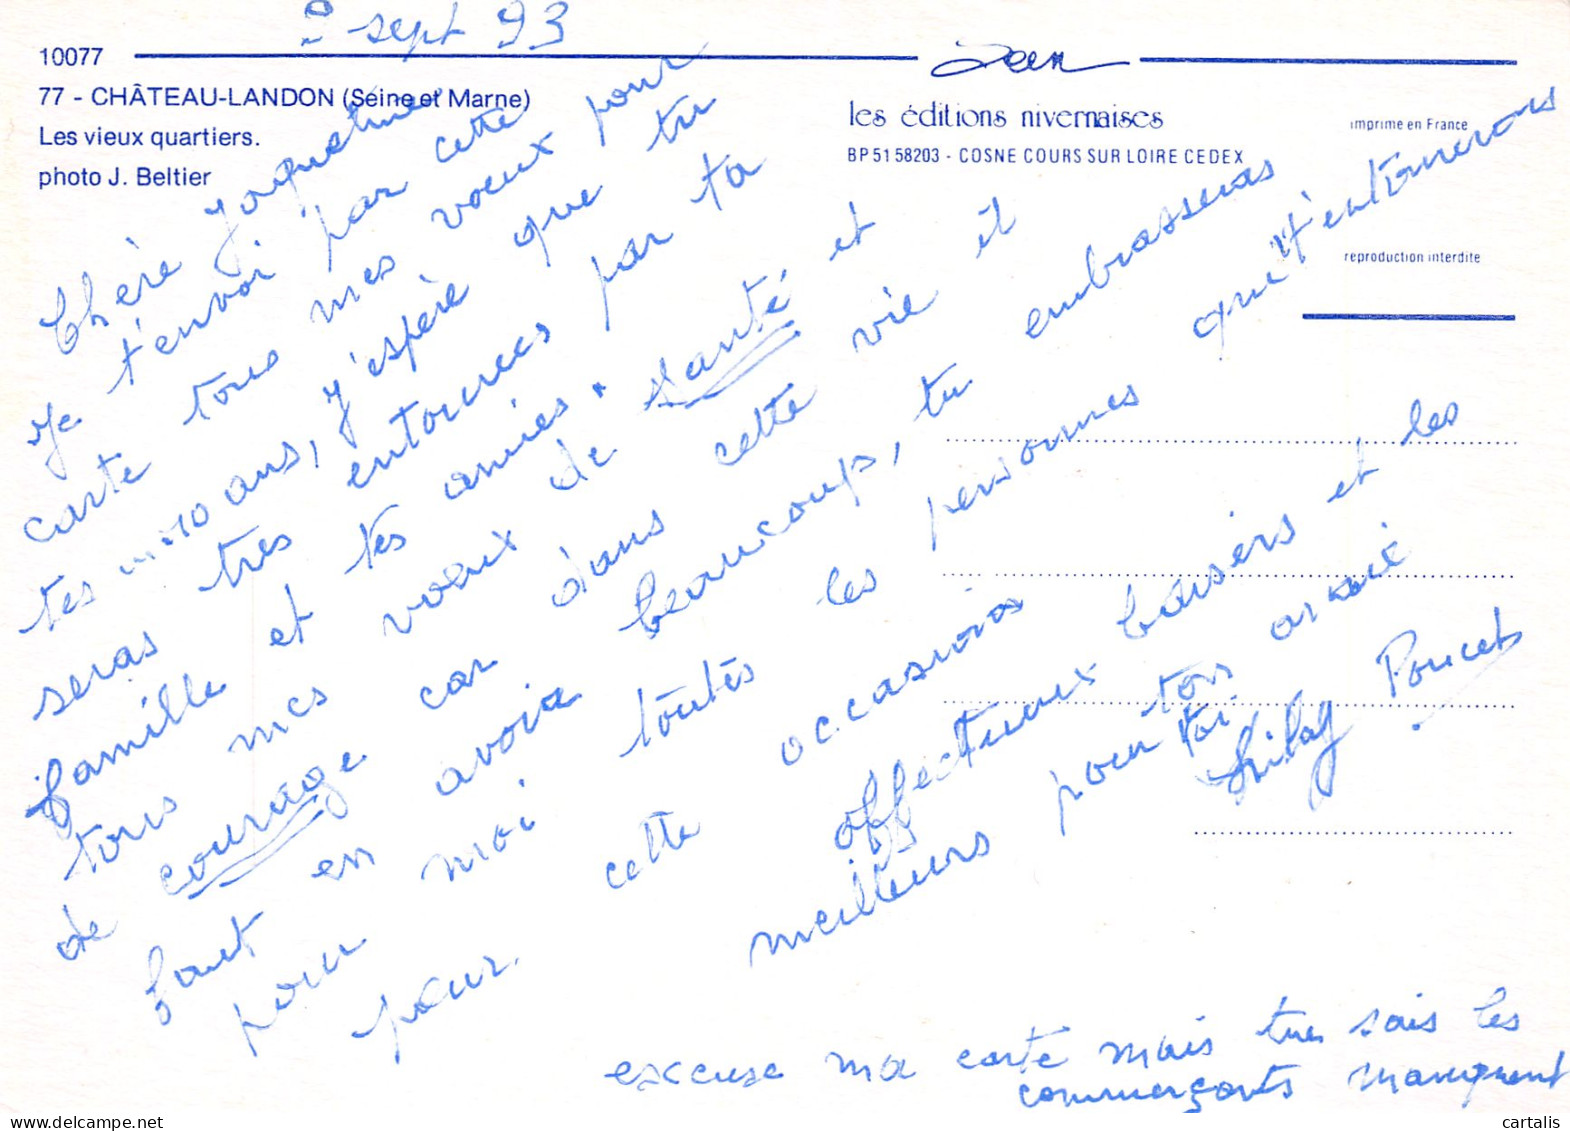 2 sept 93
10077
77 - CHÂTEAU-LANDON (Seine et Marne)
Les vieux quartiers.
photo J. Beltier
les éditions nivernaises
BP 51 58203 - COSNE COURS SUR LOIRE CEDEX
imprimé en France
reproduction interdite
Chère Jacqueline
Je t'envoi par cette
carte tous mes voeux pour
tes 70 ans, j'espère que tu
seras très entourées par ta
famille et tes amies.
tous mes voeux de santé et
de courage car dans cette vie il
faut en avoir beaucoup, tu embrasseras
pour moi toutes les personnes qui t'entourerons
pour cette occasions
affectueux baisers et les
meilleurs pour toi
Poucet
excuse ma carte mais tu sais les
commerçants manquent
cartalis